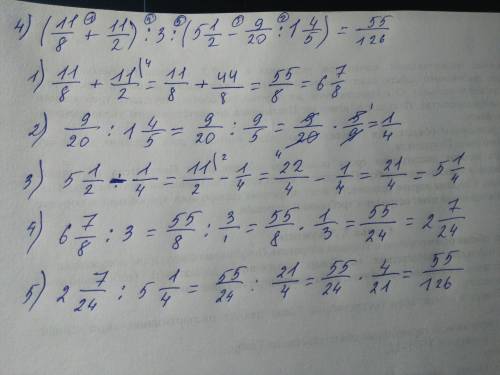 4) (11/8 + 11/2) : 3 : (5 1/2 - 9/20 : 1 4/5) = 55/126
1) 11/8 + 11/2 \4 = 11/8 + 44/8 = 55/8 = 6 7/8
2) 9/20 : 1 4/5 = 9/20 : 9/5 = 9/20 · 5/9 = 1/4
3) 5 1/2 - 1/4 = 11/2 \2 - 1/4 = 22/4 - 1/4 = 21/4 = 5 1/4
4) 6 7/8 : 3 = 55/8 : 3/1 = 55/8 · 1/3 = 55/24 = 2 7/24
5) 2 7/24 : 5 1/4 = 55/24 : 21/4 = 55/24 · 4/21 = 55/126